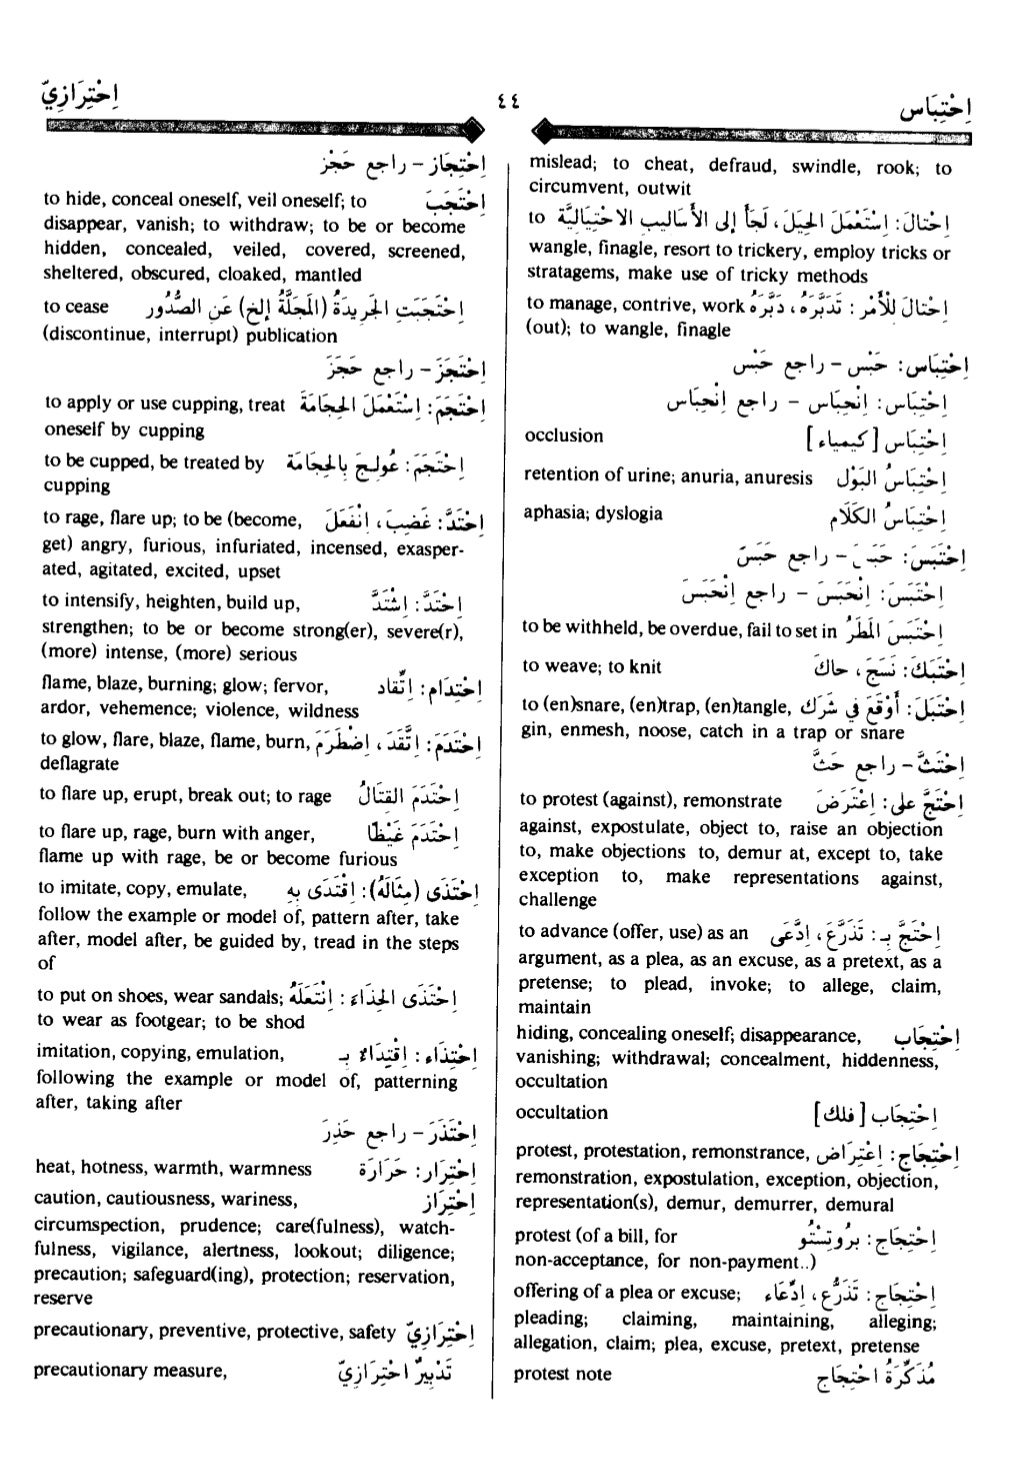 اِحْتِبَاس
٤٤
اِحْتِرَازِيّ
mislead; to cheat, defraud, swindle, rook; to
circumvent, outwit
اِحْتالَ: اِسْتَعْمَلَ الحِيَلَ، لَجَأَ إلى الأَسَاليب الاحْتِيَالِيَّة to
wangle, finagle, resort to trickery, employ tricks or
stratagems, make use of tricky methods
اِحْتالَ لِلْأَمْرِ: تَدَبَّرَهُ، دَبَّرَهُ to manage, contrive, work
(out); to wangle, finagle
اِحْتِبَاس: حَبْس – راجع حَبْس
اِحْتِبَاس: اِنْحِبَاس – راجع اِنْحِبَاس
اِحْتِبَاس [كيمياء] occlusion
اِحْتِبَاسُ البَوْل retention of urine; anuria, anuresis
اِحْتِبَاسُ الكَلَام aphasia; dyslogia
اِحْتَبَسَ: حَبَسَ – راجع حَبَسَ
اِحْتَبَسَ: اِنْحَبَسَ – راجع اِنْحَبَسَ
اِحْتَبَسَ المَطَرُ to be withheld, be overdue, fail to set in
اِحْتَبَكَ: نَسَجَ، حاكَ to weave; to knit
اِحْتَبَلَ: أَوْقَعَ في شَرَك to (en)snare, (en)trap, (en)tangle,
gin, enmesh, noose, catch in a trap or snare
اِحْتَثَّ – راجع حَثَّ
اِحْتَجَّ على: اِعْتَرَضَ to protest (against), remonstrate
against, expostulate, object to, raise an objection
to, make objections to, demur at, except to, take
exception to, make representations against,
challenge
اِحْتَجَّ بِـ: تَذَرَّعَ، اِدَّعَى to advance (offer, use) as an
argument, as a plea, as an excuse, as a pretext, as a
pretense; to plead, invoke; to allege, claim,
maintain
اِحْتِجَاب hiding, concealing oneself; disappearance,
vanishing; withdrawal; concealment, hiddenness,
occultation
اِحْتِجَاب [فلك] occultation
اِحْتِجَاج: اِعْتِرَاض protest, protestation, remonstrance,
remonstration, expostulation, exception, objection,
representation(s), demur, demurrer, demural
اِحْتِجَاج: بروتِسْتُو protest (of a bill, for
non-acceptance, for non-payment..)
اِحْتِجَاج: تَذَرُّع، اِدِّعَاء offering of a plea or excuse;
pleading; claiming, maintaining, alleging;
allegation, claim; plea, excuse, pretext, pretense
مُذَكِّرَةُ احْتِجَاج protest note
اِحْتِجَاز – راجع حَجْز
اِحْتَجَبَ to hide, conceal oneself, veil oneself; to
disappear, vanish; to withdraw; to be or become
hidden, concealed, veiled, covered, screened,
sheltered, obscured, cloaked, mantled
اِحْتَجَبَتِ الجَرِيدَةُ (المَجَلَّةُ إلخ) عَنِ الصُّدُور to cease
(discontinue, interrupt) publication
اِحْتَجَزَ – راجع حَجَزَ
اِحْتَجَمَ: اِسْتَعْمَلَ الحِجَامَةَ to apply or use cupping, treat
oneself by cupping
اِحْتَجَمَ: عُولِجَ بِالحِجَامَة to be cupped, be treated by
cupping
اِحْتَدَّ: غَضِبَ، انْفَعَلَ to rage, flare up; to be (become,
get) angry, furious, infuriated, incensed, exasper-
ated, agitated, excited, upset
اِحْتَدَّ: اِشْتَدَّ to intensify, heighten, build up,
strengthen; to be or become strong(er), severe(r),
(more) intense, (more) serious
اِحْتِدَام: اِتِّقاد flame, blaze, burning; glow; fervor,
ardor, vehemence; violence, wildness
اِحْتَدَمَ: اِتَّقَدَ، اِضْطَرَمَ to glow, flare, blaze, flame, burn,
deflagrate
اِحْتَدَمَ القِتَالُ to flare up, erupt, break out; to rage
اِحْتَدَمَ غَيْظًا to flare up, rage, burn with anger,
flame up with rage, be or become furious
اِحْتَذَى (مِثَالَهُ): اِقْتَدَى بِهِ to imitate, copy, emulate,
follow the example or model of, pattern after, take
after, model after, be guided by, tread in the steps
of
اِحْتَذَى الحِذَاءَ: اِنْتَعَلَهُ to put on shoes, wear sandals;
to wear as footgear; to be shod
اِحْتِذَاء: اِقْتِدَاءٌ بِـ imitation, copying, emulation,
following the example or model of, patterning
after, taking after
اِحْتَذَرَ – راجع حَذِرَ
اِحْتِرَار: حَرَارَة heat, hotness, warmth, warmness
اِحْتِرَاز caution, cautiousness, wariness,
circumspection, prudence; care(fulness), watch-
fulness, vigilance, alertness, lookout; diligence;
precaution; safeguard(ing), protection; reservation,
reserve
اِحْتِرَازِيّ precautionary, preventive, protective, safety
تَدْبِيرٌ احْتِرَازِيّ precautionary measure,